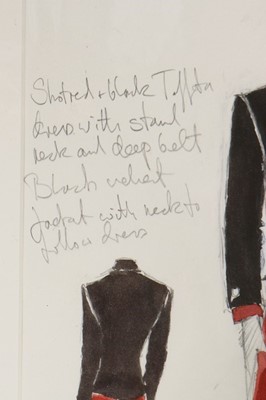 Shotred + black Taffeta
dress with stand
neck and deep belt
Black velvet
Jacket with neck to
follow dress